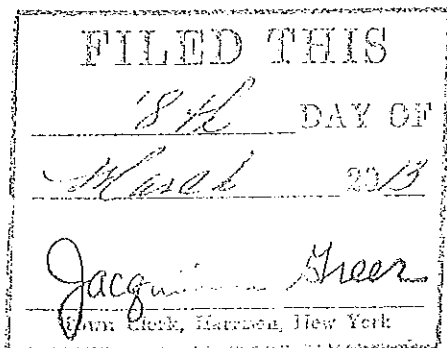 FILED THIS
18th DAY OF
March 2013
Greer
Town Clerk, Harrison, New York